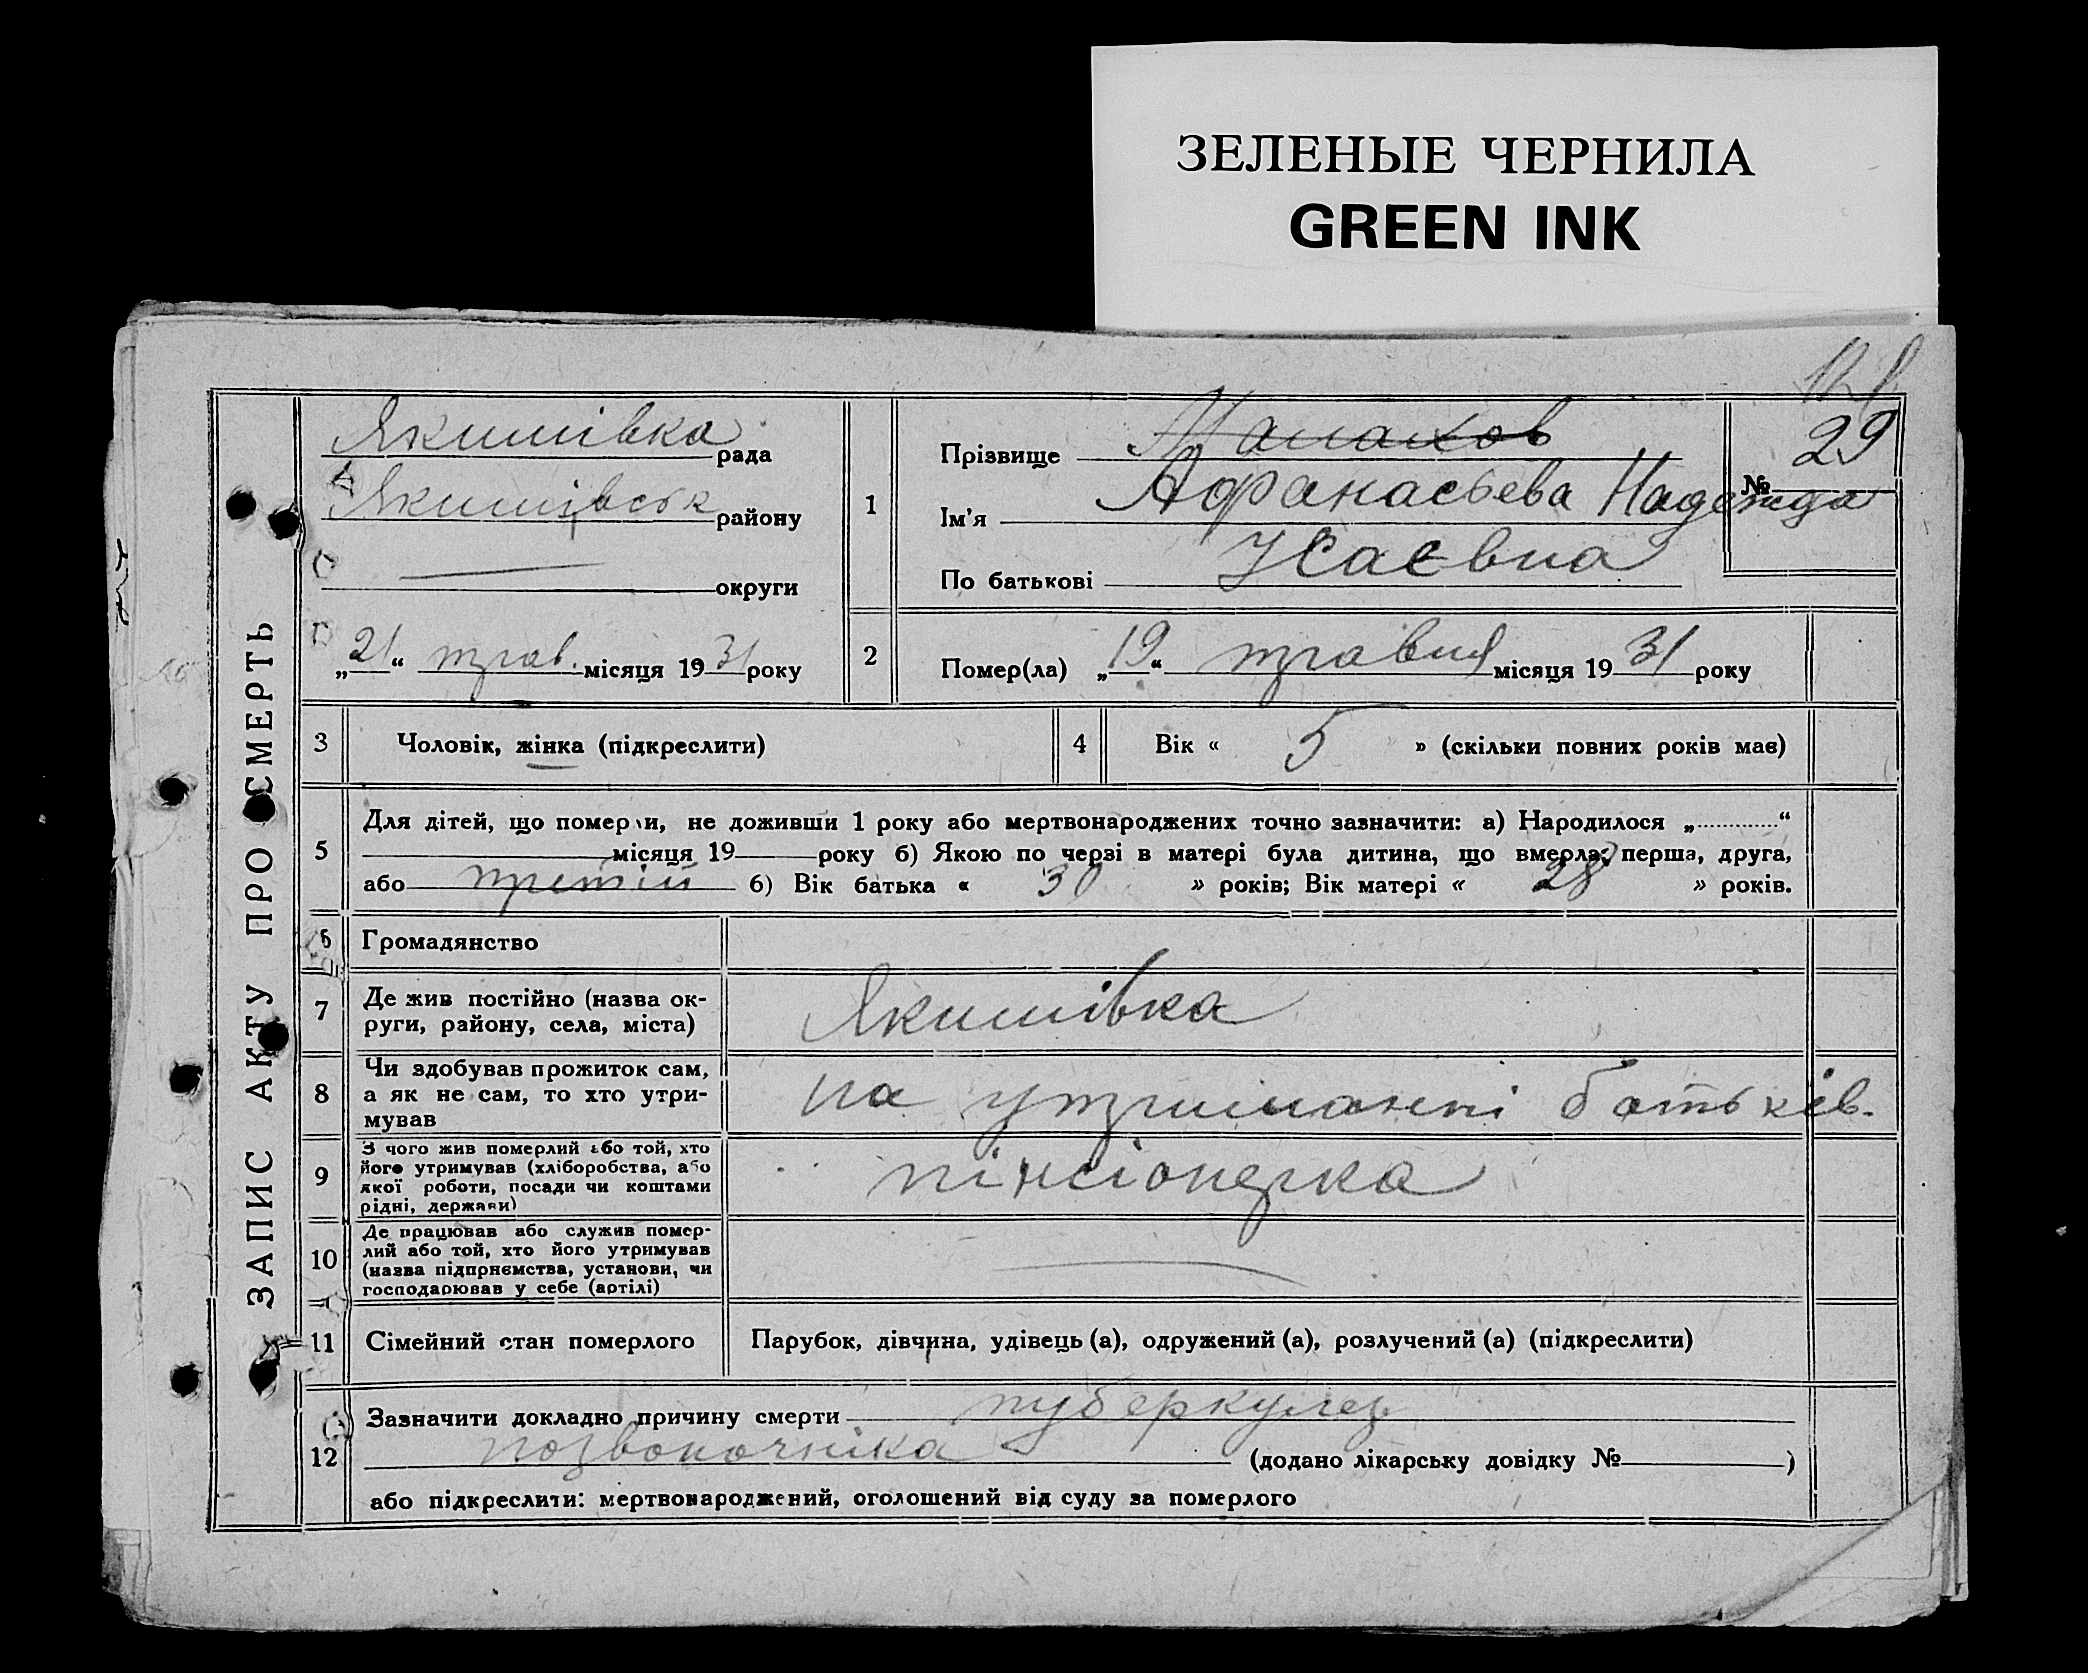 ЗЕЛЕНЫЕ ЧЕРНИЛА
GREEN INK
ЗАПИС АКТУ ПРО СМЕРТЬ
Якимівка рада
Якимівськ району
округи
„21“ трав. місяця 1931 року
1
Прізвище
Ім'я Афанасьева Надежда
По батькові Исаєвна
№ 29
2
Помер(ла) „19“ травня місяця 1931 року
3 Чоловік, жінка (підкреслити)
4 Вік « 5 » (скільки повних років має)
5
Для дітей, що померли, не доживши 1 року або мертвонароджених точно зазначити: а) Народилося „ “
місяця 19 року б) Якою по черзі в матері була дитина, що вмерла: перша, друга,
або третій б) Вік батька « 30 » років; Вік матері « 28 » років.
6 Громадянство
7
Де жив постійно (назва ок-
руги, району, села, міста)
Якимівка
8
Чи здобував прожиток сам,
а як не сам, то хто утри-
мував
на утриманні батьків.
9
З чого жив померлий або той, хто
його утримував (хліборобства, або
якої роботи, посади чи коштами
рідні, держави)
пінсіонерка
10
Де працював або служив помер-
лий або той, хто його утримував
(назва підприємства, установи, чи
господарював у себе (артілі)
11 Сімейний стан померлого
Парубок, дівчина, удівець (а), одружений (а), розлучений (а) (підкреслити)
12
Зазначити докладно причину смерти туберкулез
позвоночніка (додано лікарську довідку № )
або підкреслити: мертвонароджений, оголошений від суду за померлого